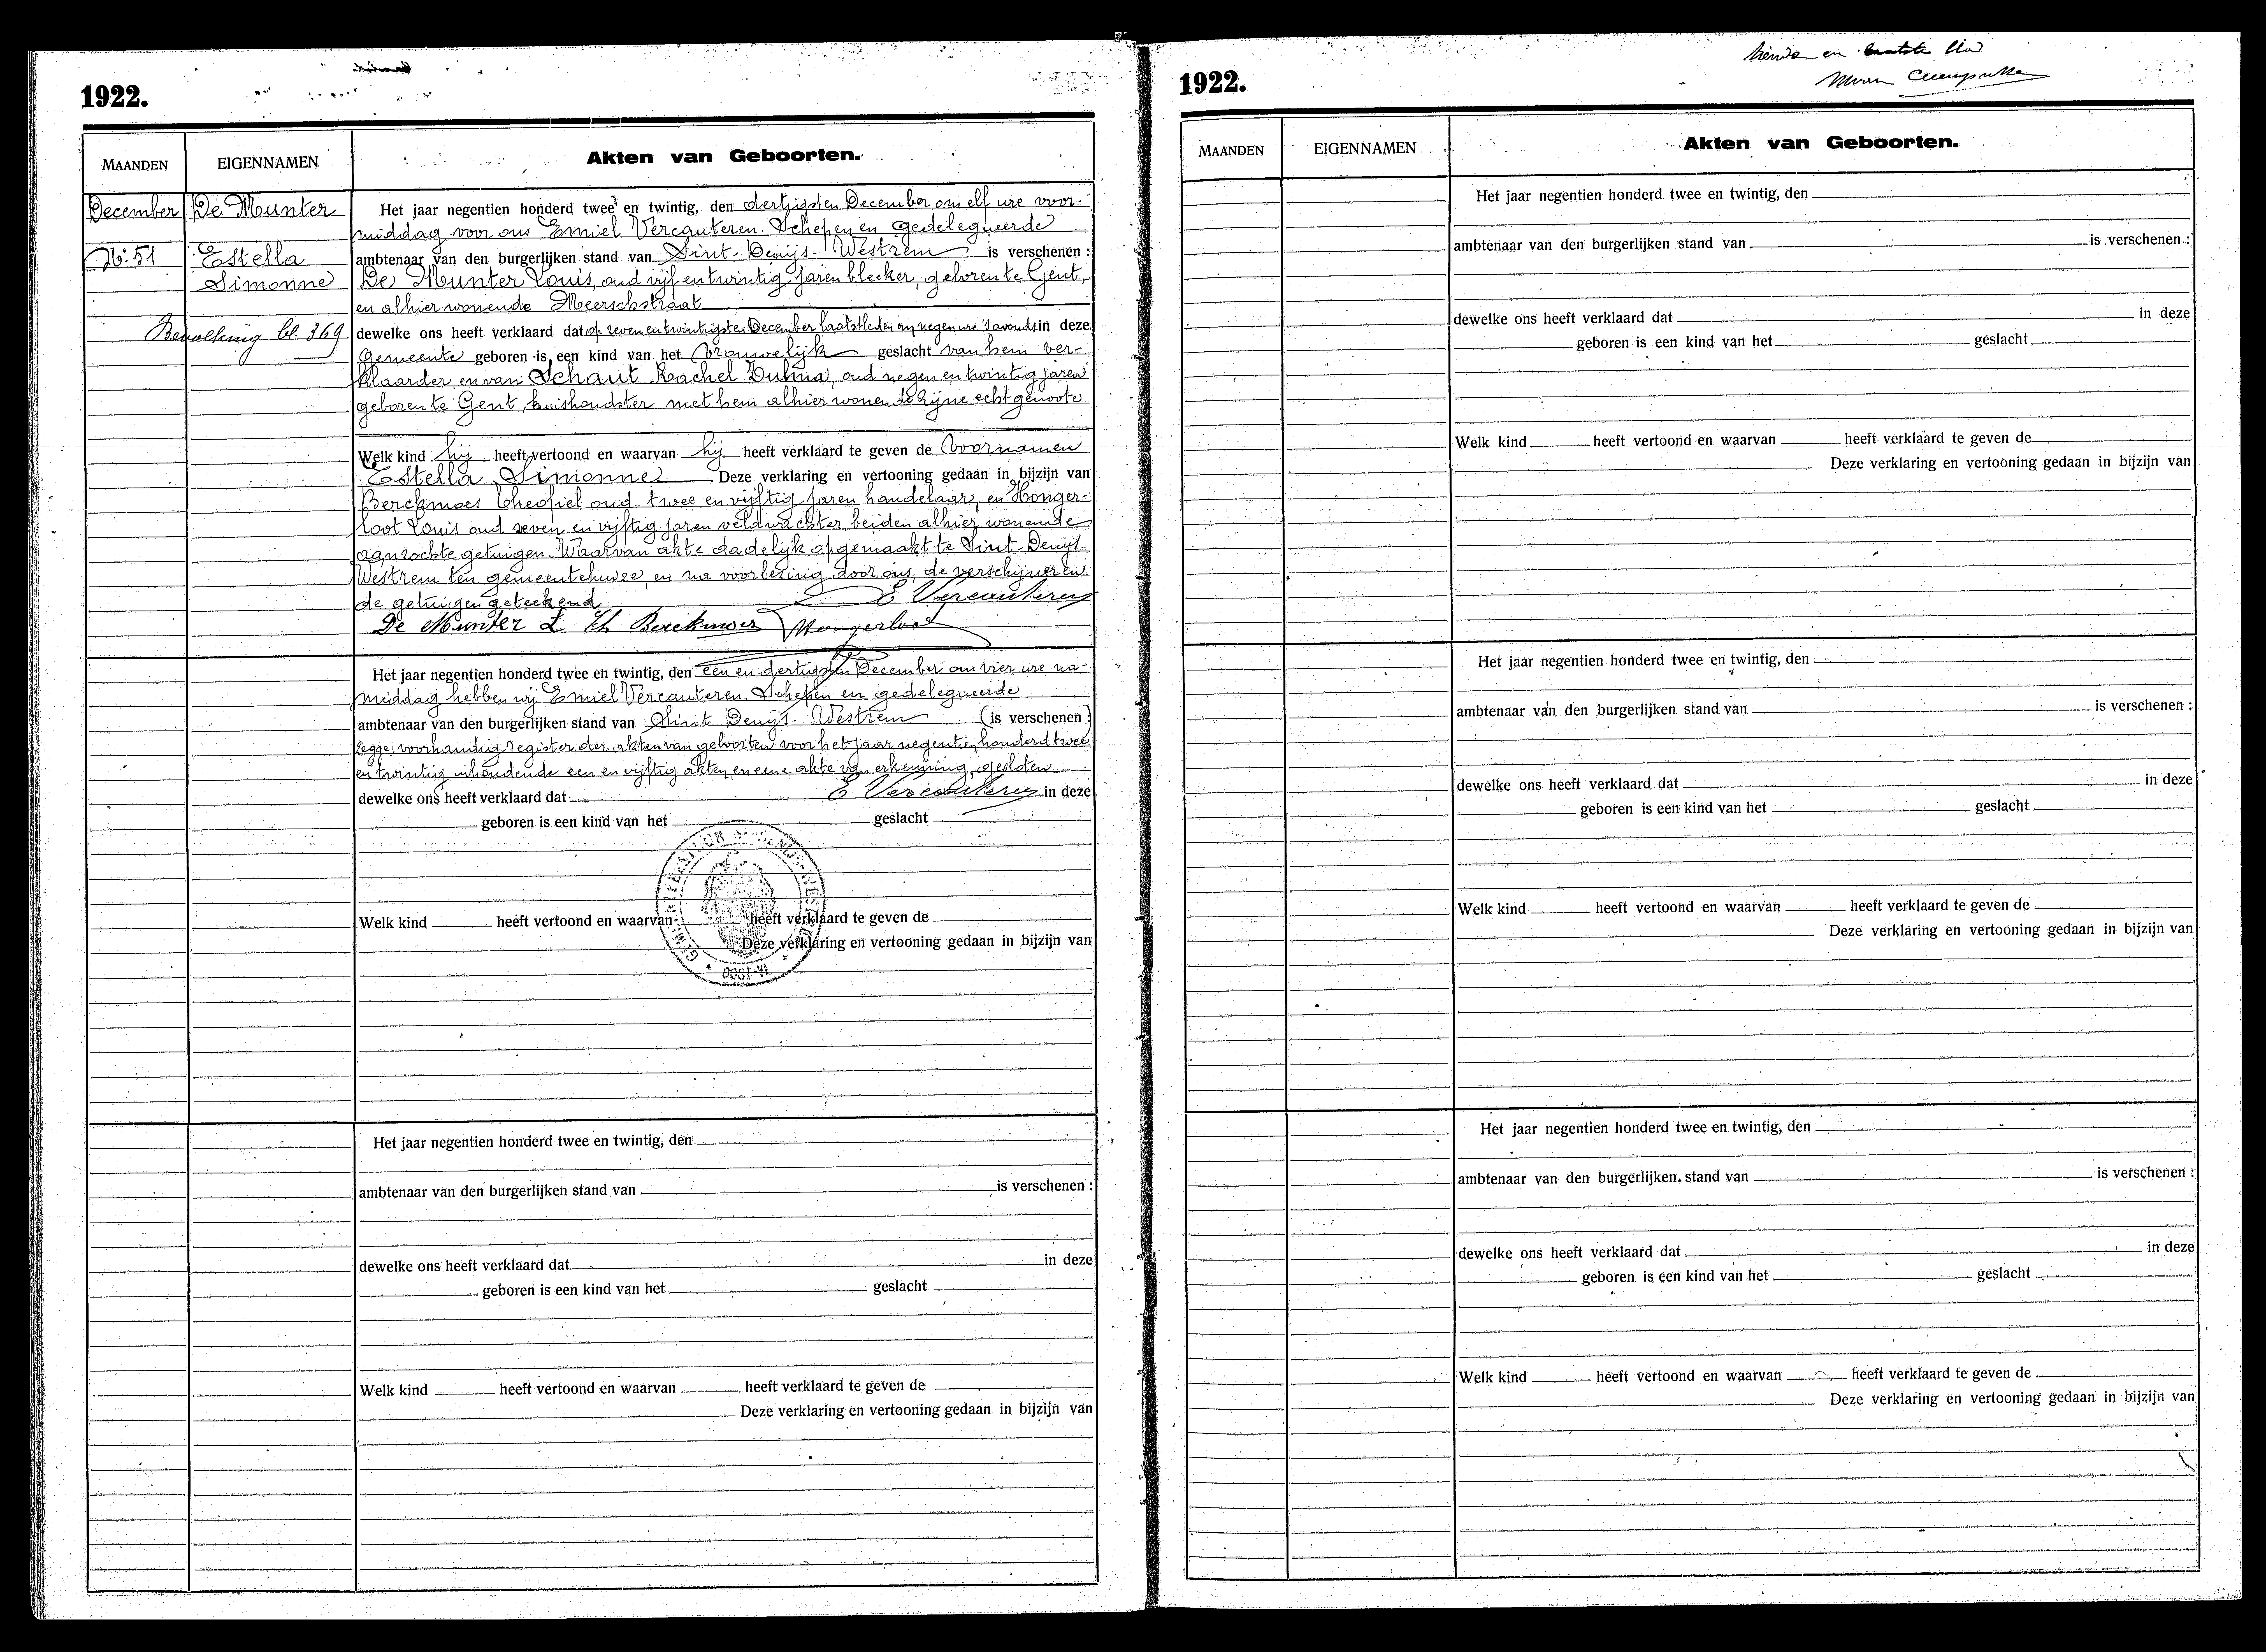 1922.
MAANDEN EIGENNAMEN Akten van Geboorten.
December De Munter
Nº 51 Estella
Simonne
Bevolking bl. 369
Het jaar negentien honderd twee en twintig, den dertigsten December om elf ure voor-
middag voor ons Emiel Vercauteren. Schepen en gedelegueerde
ambtenaar van den burgerlijken stand van Sint-Denijs-Westrem is verschenen :
De Munter Louis, oud vijf en twintig jaren bleeker, geboren te Gent,
en alhier wonende Meerschstraat
dewelke ons heeft verklaard dat op zeven en twintigsten December laatstleden om negen ure 's avonds in deze
Gemeente geboren is een kind van het vrouwelijk geslacht van hem ver-
klaarder, en van Schaut Rachel Dulma, oud negen en twintig jaren
geboren te Gent, huishoudster met hem alhier wonende zijne echtgenoote
Welk kind hij heeft vertoond en waarvan hij heeft verklaard te geven de voornamen
Estella Simonne Deze verklaring en vertooning gedaan in bijzijn van
Berckmoes Theofiel oud twee en vijftig jaren handelaar, en Honger-
loot Louis oud zeven en vijftig jaren veldwachter, beiden alhier wonende
aanzochte getuigen. Waarvan akte dadelijk opgemaakt te Sint-Denijs-
Westrem ten gemeentehuize, en na voorlezing door ons, de verschijner en
de getuigen geteekend
E Vercauteren
De Munter L Th Berckmoes Hongerloot
Het jaar negentien honderd twee en twintig, den een en dertigsten December om vier ure na-
middag hebben wij Emiel Vercauteren. Schepen en gedelegueerde
ambtenaar van den burgerlijken stand van Sint Denijs-Westrem (is verschenen :)
voorhandig register der akten van geboorten voor het jaar negentien honderd twee
en twintig inhoudende een en vijftig akten, en eene akte van erkenning, gesloten
dewelke ons heeft verklaard dat E Vercauteren in deze
geboren is een kind van het geslacht
Welk kind heeft vertoond en waarvan heeft verklaard te geven de
Deze verklaring en vertooning gedaan in bijzijn van
OOST-VL.
Het jaar negentien honderd twee en twintig, den
ambtenaar van den burgerlijken stand van is verschenen :
dewelke ons heeft verklaard dat in deze
geboren is een kind van het geslacht
Welk kind heeft vertoond en waarvan heeft verklaard te geven de
Deze verklaring en vertooning gedaan in bijzijn van
en laatste
1922.
MAANDEN EIGENNAMEN Akten van Geboorten.
Het jaar negentien honderd twee en twintig, den
ambtenaar van den burgerlijken stand van is verschenen :
dewelke ons heeft verklaard dat in deze
geboren is een kind van het geslacht
Welk kind heeft vertoond en waarvan heeft verklaard te geven de
Deze verklaring en vertooning gedaan in bijzijn van
Het jaar negentien honderd twee en twintig, den
ambtenaar van den burgerlijken stand van is verschenen :
dewelke ons heeft verklaard dat in deze
geboren is een kind van het geslacht
Welk kind heeft vertoond en waarvan heeft verklaard te geven de
Deze verklaring en vertooning gedaan in bijzijn van
Het jaar negentien honderd twee en twintig, den
ambtenaar van den burgerlijken stand van is verschenen :
dewelke ons heeft verklaard dat in deze
geboren is een kind van het geslacht
Welk kind heeft vertoond en waarvan heeft verklaard te geven de
Deze verklaring en vertooning gedaan in bijzijn van